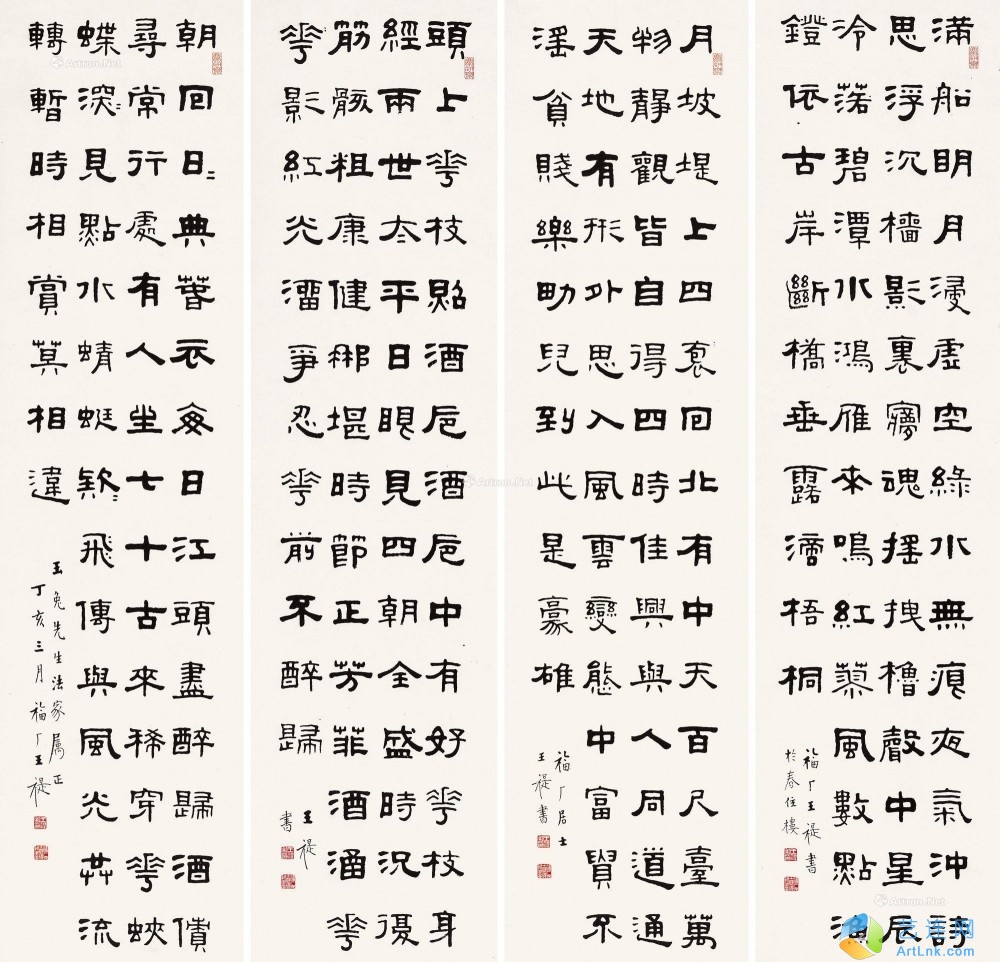 滿船明月浸虛空綠水無痕夜氣沖詩
思浮沉檣影裏夢魂搖拽櫓聲中星辰
冷落碧潭水鴻雁來鳴紅蓼風數點漁
鐙依古岸斷橋垂露滴梧桐
福厂王禔書
於春住樓
月坡堤上四裵回北有中天百尺臺萬
物靜觀皆自得四時佳興與人同道通
天地有形外思入風雲變態中富貴不
淫貧賤樂男兒到此是豪雄
福厂居士
王禔書
頭上花枝照酒卮酒卮中有好花枝身
經兩世太平日眼見四朝全盛時況復
筋骸粗康健那堪時節正芳菲酒涵花
影紅光溜爭忍花前不醉歸
王禔
書
朝回日〻典春衣每日江頭盡醉歸酒債
尋常行處有人生七十古來稀穿花蛺
蝶深〻見點水蜻蜓款〻飛傳與風光共流
轉暫時相賞莫相違
玉兔先生法家属正
丁亥三月福厂王禔
Artron.Net
Artron.Net
Artron.Net
艺连网
ArtLnk.com